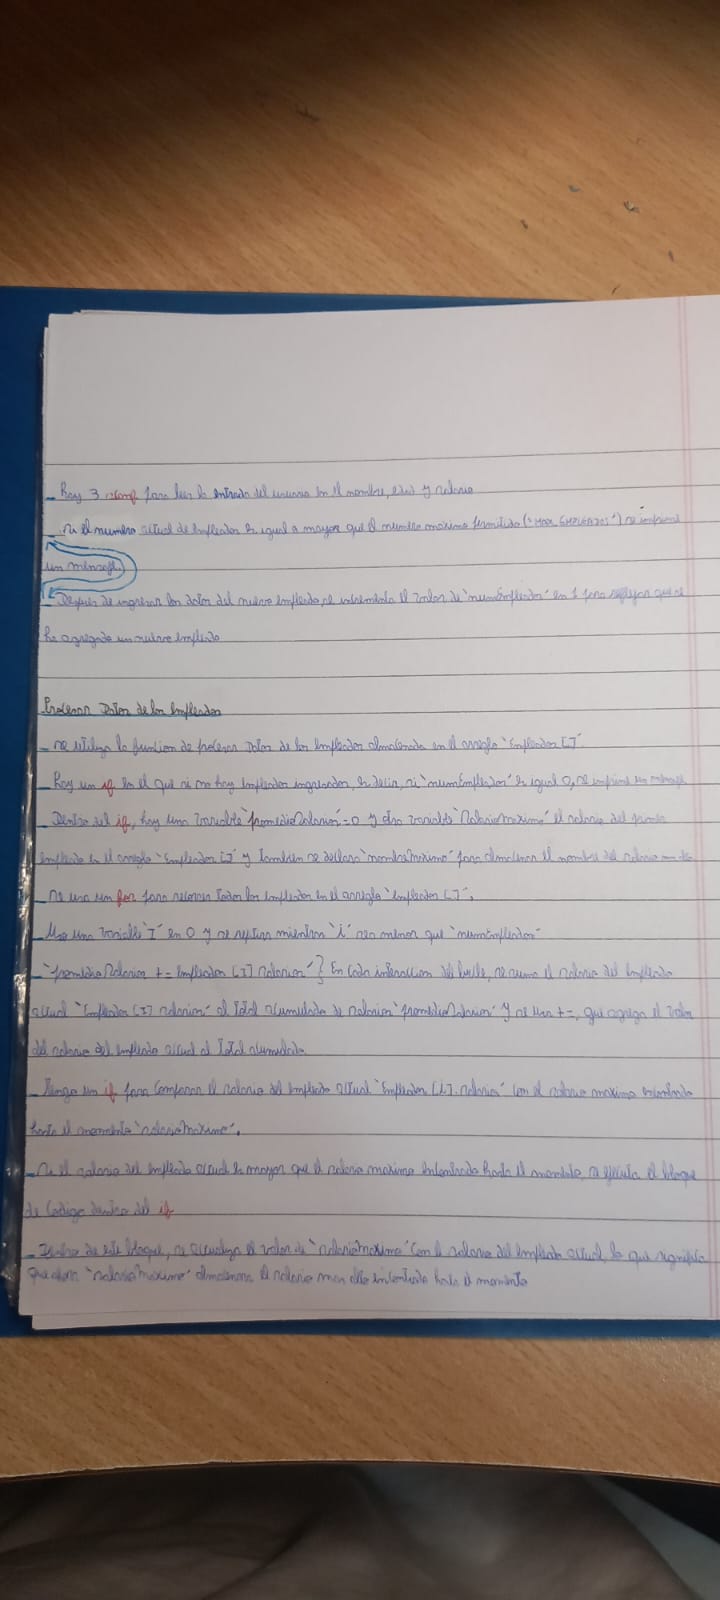 - Hay 3 scanf para leer la entrada del usuario en el nombre, edad y salario
- si el numero actual de empleados es igual a mayor que el numero máximo permitido ("MAX_EMPLEADOS") se imprime
un mensaje.
- Después de ingresar los datos del nuevo empleado, se incrementa el valor de "numEmpleados" en 1 para reflejar que se
ha agregado un nuevo empleado
Procesar Datos de los Empleados
- se utiliza la funcion de procesar Datos de los empleados almacenada en el arreglo "Empleados []"
- Hay un if en el que si no hay empleados ingresados, es decir, si "numEmpleados" es igual 0, se imprime un mensaje
- Dentro del if, hay una variable "promedioSalarios"=0 y otra variable "SalarioMaximo" el salario del primer
empleado en el arreglo "Empleados []" y tambien se declara "nombreMaximo" para almacenar el nombre del salario mas alto
- se usa un for para recorrer todos los empleados en el arreglo "empleados []".
una variable "I" en 0 y se mientras "i" sea menor que "numEmpleados"
- "promedioSalarios += Empleados [I] salarios" } En cada interaccion del bucle, se suma el salario del empleado
actual "Empleados [I] salarios" al total acumulado de salarios "promedioSalarios" y se usa +=, que agrega el valor
del salario del empleado actual al total acumulado.
- Tengo un if para comparar el salario del empleado actual "Empleados [i].salarios" con el salario maximo encontrado
hasta el momento "salarioMaximo".
- si el salario del empleado actual es mayor que el salario maximo encontrado hasta el momento, se ejecuta el bloque
de codigo dentro del if
- Dentro de este bloque, se actualiza el valor de "salarioMaximo" con el salario del empleado actual, lo que significa
que ahora "salarioMaximo" almacena el salario mas alto encontrado hasta el momento